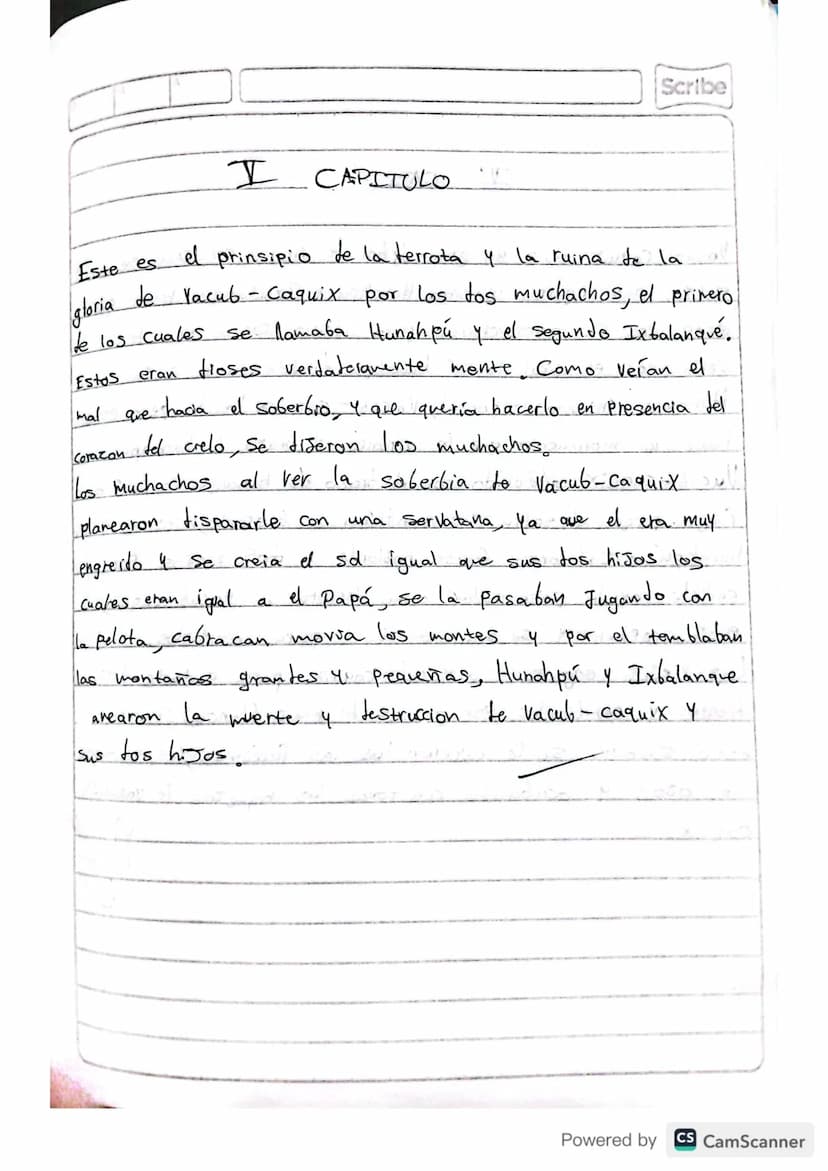 Scribe
V CAPITULO
Este es el prinsipio de la terrota y la ruina de la
gloria de Vacub-Caquix por los dos muchachos, el primero
de los cuales se llamaba Hunahpú y el segundo Ixbalanqué.
Estos eran dioses verdaderamente mente. Como veían el
mal que hacia el soberbio, y que quería hacerlo en presencia del
corazon del cielo, se dijeron los muchachos.
Los muchachos al ver la soberbia de Vacub-Caquix
planearon dispararle con una servatana, ya que el era muy
engreido y se creia el sol igual que sus dos hijos los
cuales eran igual a el Papá, se la pasaban Jugando con
la pelota, cabracan movia los montes y por el temblaban
las montañas grandes y pequeñas, Hunahpú y Ixbalanque
arearon la muerte y destruccion de vacub-caquix y
sus dos hijos.
Powered by CS CamScanner